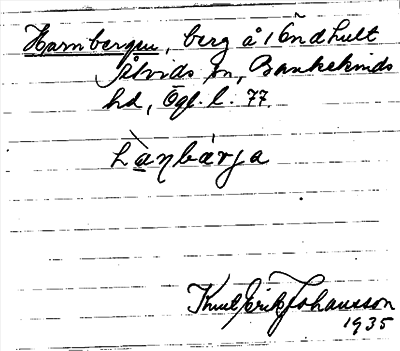 Hambergen, berg å 1 Öndhult
Åtvids sn, Bankekinds
hd, Ögl. l. 77.
hànbárja
Knut Erik Johansson
1935